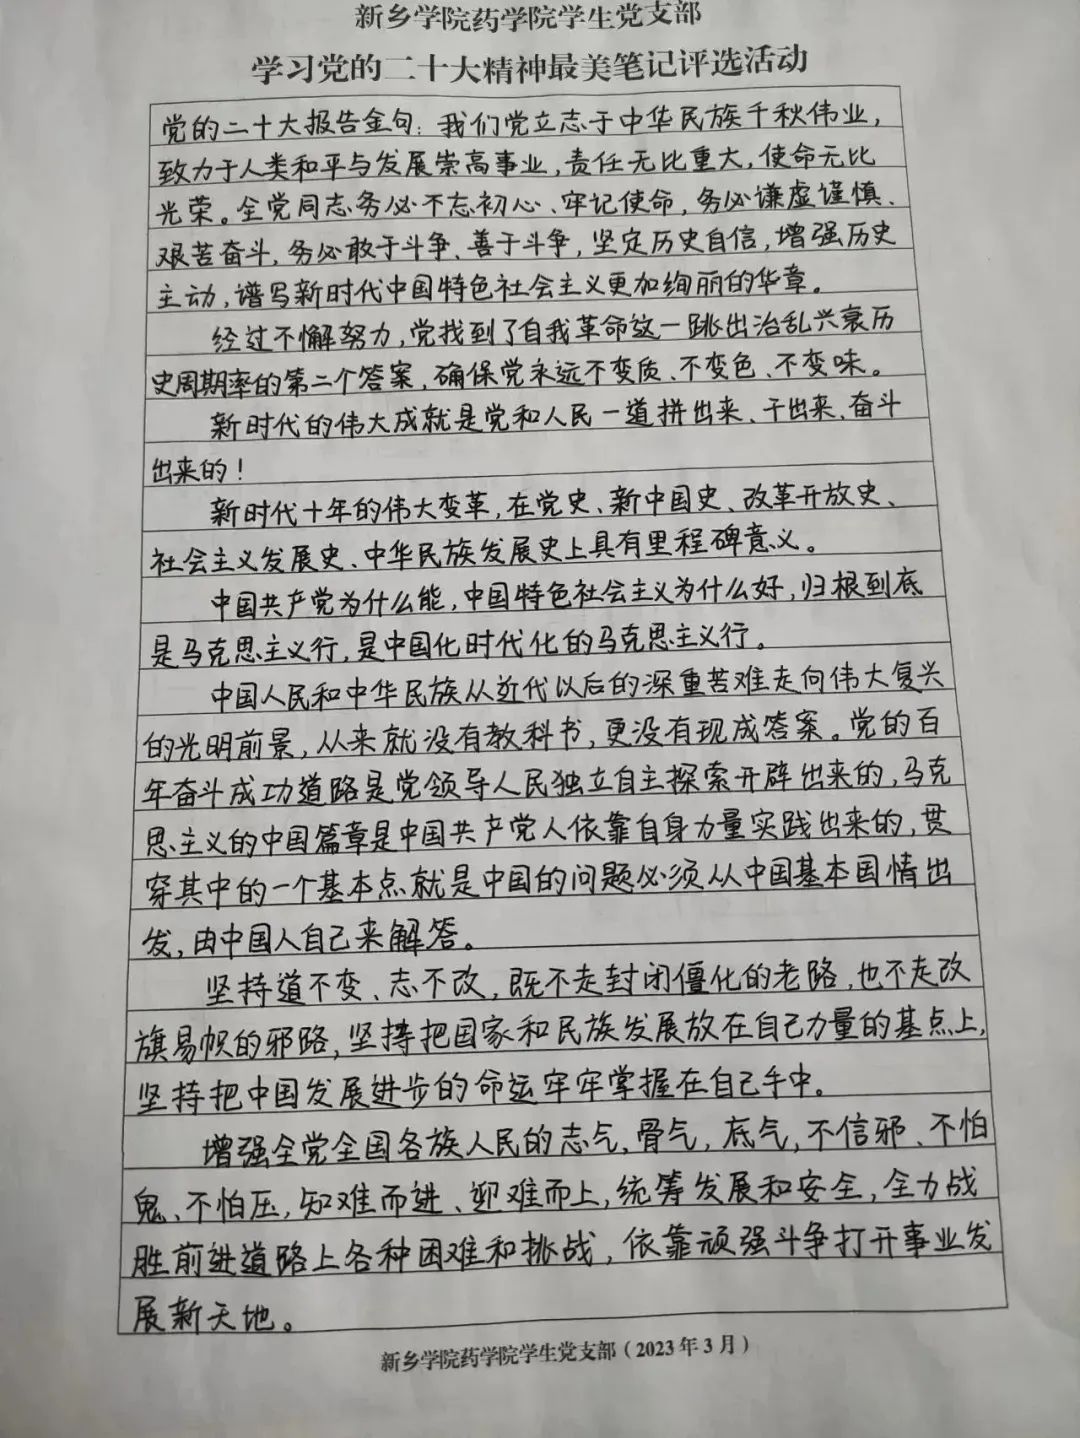 新乡学院药学院学生党支部
学习党的二十大精神最美笔记评选活动
党的二十大报告金句：我们党立志于中华民族千秋伟业，
致力于人类和平与发展崇高事业，责任无比重大，使命无比
光荣。全党同志务必不忘初心、牢记使命，务必谦虚谨慎、
艰苦奋斗，务必敢于斗争、善于斗争，坚定历史自信，增强历史
主动，谱写新时代中国特色社会主义更加绚丽的华章。
经过不懈努力，党找到了自我革命这一跳出治乱兴衰历
史周期率的第二个答案，确保党永远不变质、不变色、不变味。
新时代的伟大成就是党和人民一道拼出来、干出来、奋斗
出来的！
新时代十年的伟大变革，在党史、新中国史、改革开放史、
社会主义发展史、中华民族发展史上具有里程碑意义。
中国共产党为什么能，中国特色社会主义为什么好，归根到底
是马克思主义行，是中国化时代化的马克思主义行。
中国人民和中华民族从近代以后的深重苦难走向伟大复兴
的光明前景，从来就没有教科书，更没有现成答案。党的百
年奋斗成功道路是党领导人民独立自主探索开辟出来的，马克
思主义的中国篇章是中国共产党人依靠自身力量实践出来的，贯
穿其中的一个基本点就是中国的问题必须从中国基本国情出
发，由中国人自己来解答。
坚持道不变、志不改，既不走封闭僵化的老路，也不走改
旗易帜的邪路，坚持把国家和民族发展放在自己力量的基点上，
坚持把中国发展进步的命运牢牢掌握在自己手中。
增强全党全国各族人民的志气，骨气，底气，不信邪、不怕
鬼、不怕压，知难而进、迎难而上，统筹发展和安全，全力战
胜前进道路上各种困难和挑战，依靠顽强斗争打开事业发
展新天地。
新乡学院药学院学生党支部（2023年3月）